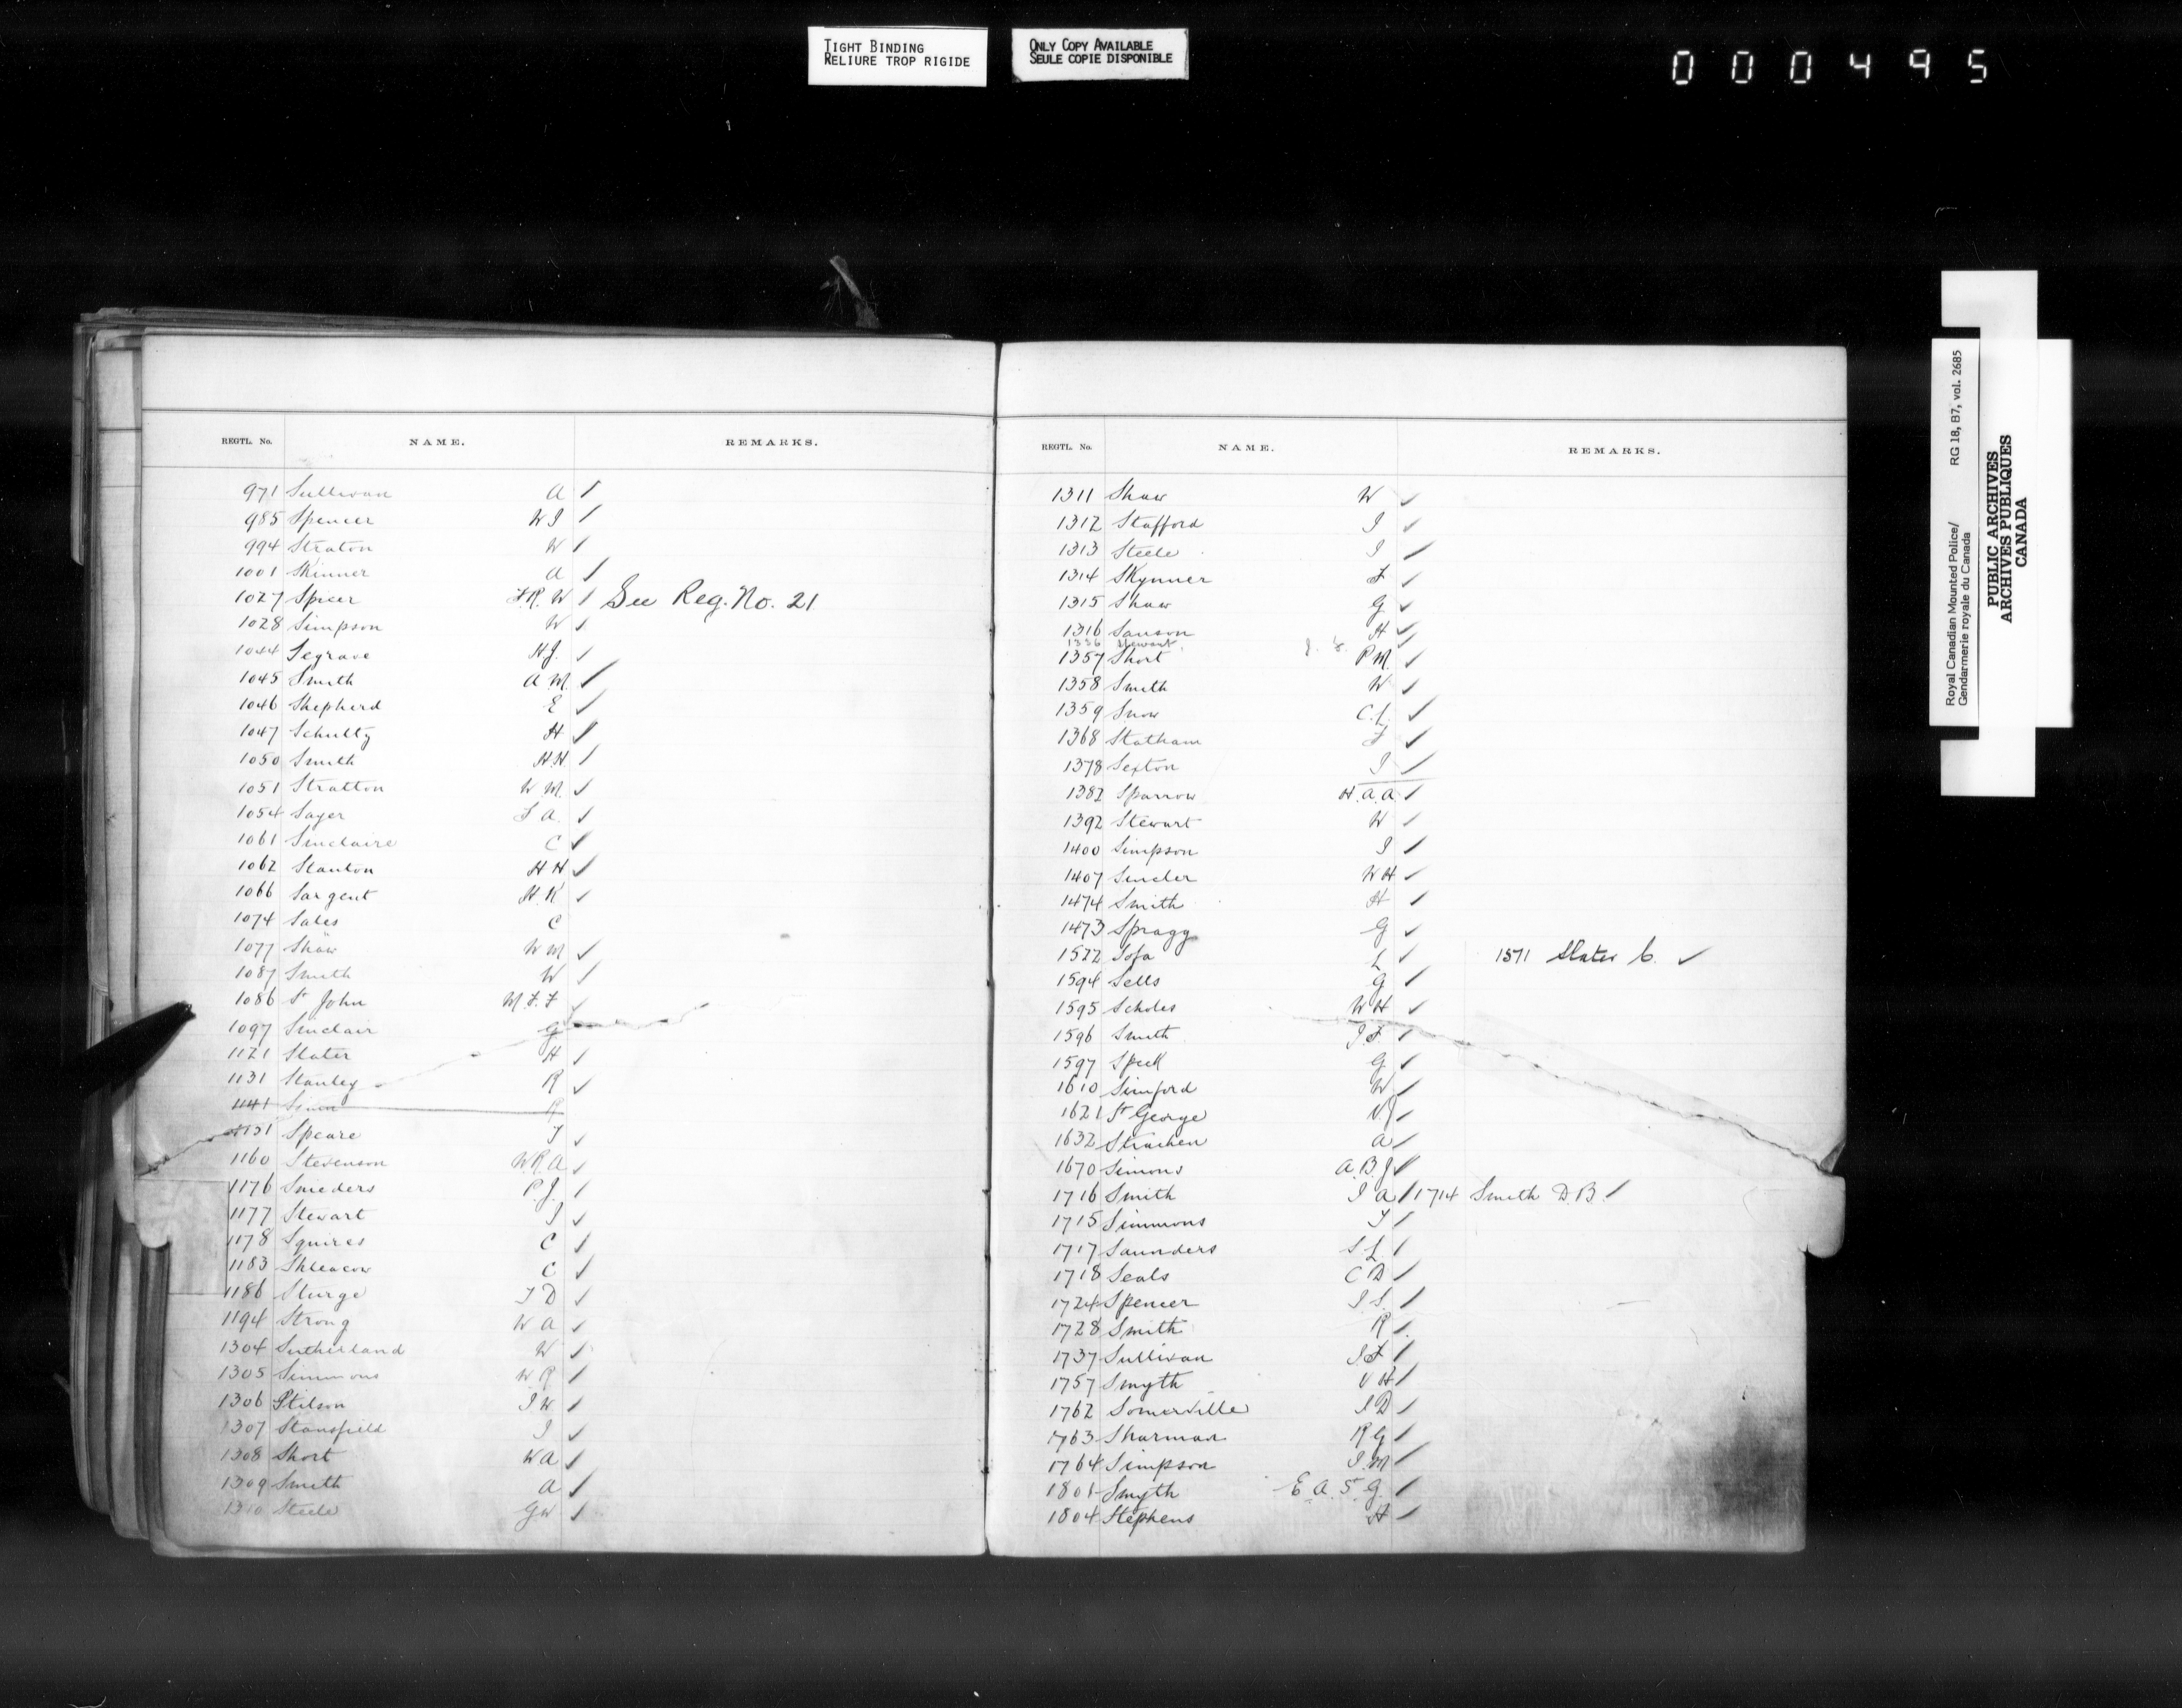 TIGHT BINDING
RELIURE TROP RIGIDE
ONLY COPY AVAILABLE
SEULE COPIE DISPONIBLE
000495
REGTL. No. NAME. REMARKS.
971 Sullivan A ✓
985 Spencer W J ✓
994 Straton W ✓
1001 Skinner A ✓
1027 Spicer F. R. W ✓ See Reg. No. 21
1028 Simpson W ✓
1044 Segrave H J. ✓
1045 Smith A M. ✓
1046 Shepherd E ✓
1047 Schultz H ✓
1050 Smith H H ✓
1051 Stratton W M. ✓
1054 Sayer F A. ✓
1061 Sinclaire C ✓
1062 Stanton H H ✓
1066 Sargent H. K ✓
1074 Sales C
1077 Shaw W M ✓
1087 Smith W ✓
1086 St John M. F. F ✓
1097 Sinclair G
1121 Slater H ✓
1131 Stanley R ✓
1141 R
1151 Speare T ✓
1160 Stevenson W. R. A ✓
1176 Smeders P. J. ✓
1177 Stewart J ✓
1178 Squires C ✓
1183 C ✓
1186 Sturge T D ✓
1194 Strong W A ✓
1304 Sutherland W ✓
1305 Simmons W R ✓
1306 Stilson J W ✓
1307 Stansfield J ✓
1308 Short W A ✓
1309 Smith A ✓
1310 Steele G W ✓
REGTL. No. NAME. REMARKS.
1311 Shaw W ✓
1312 Stafford J ✓
1313 Steele J ✓
1314 Skynner F ✓
1315 Shaw G ✓
1316 Sanson H ✓
1336 Stewart J. ✓
1357 Short P M. ✓
1358 Smith W ✓
1359 Snow C. L. ✓
1368 Statham F ✓
1378 Sexton J ✓
1382 Sparrow H. A. A ✓
1392 Stewart W ✓
1400 Simpson J ✓
1407 W H ✓
1474 Smith H ✓
1473 Spragg G ✓
1522 L ✓ 1571 Slater C. ✓
1594 Sells G ✓
1595 Scholes W H ✓
1596 Smith J. F. ✓
1597 Spell G ✓
1610 Simford W ✓
1621 St George ✓
1632 Strachen A ✓
1670 Simons A. B. J ✓
1716 Smith J A ✓ 1714 Smith D. B. ✓
1715 Simmons T ✓
1717 Saunders S L. ✓
1718 Seals C D ✓
1724 Spencer J. S. ✓
1728 Smith R ✓
1737 Sullivan J F ✓
1757 Smyth V H ✓
1762 Somerville J D ✓
1763 Sharman R G ✓
1764 Simpson J. M ✓
1801 Smyth E. A. S. G. ✓
1804 Stephens H ✓
Royal Canadian Mounted Police/ RG 18, B7, vol. 2685
Gendarmerie royale du Canada
PUBLIC ARCHIVES
ARCHIVES PUBLIQUES
CANADA